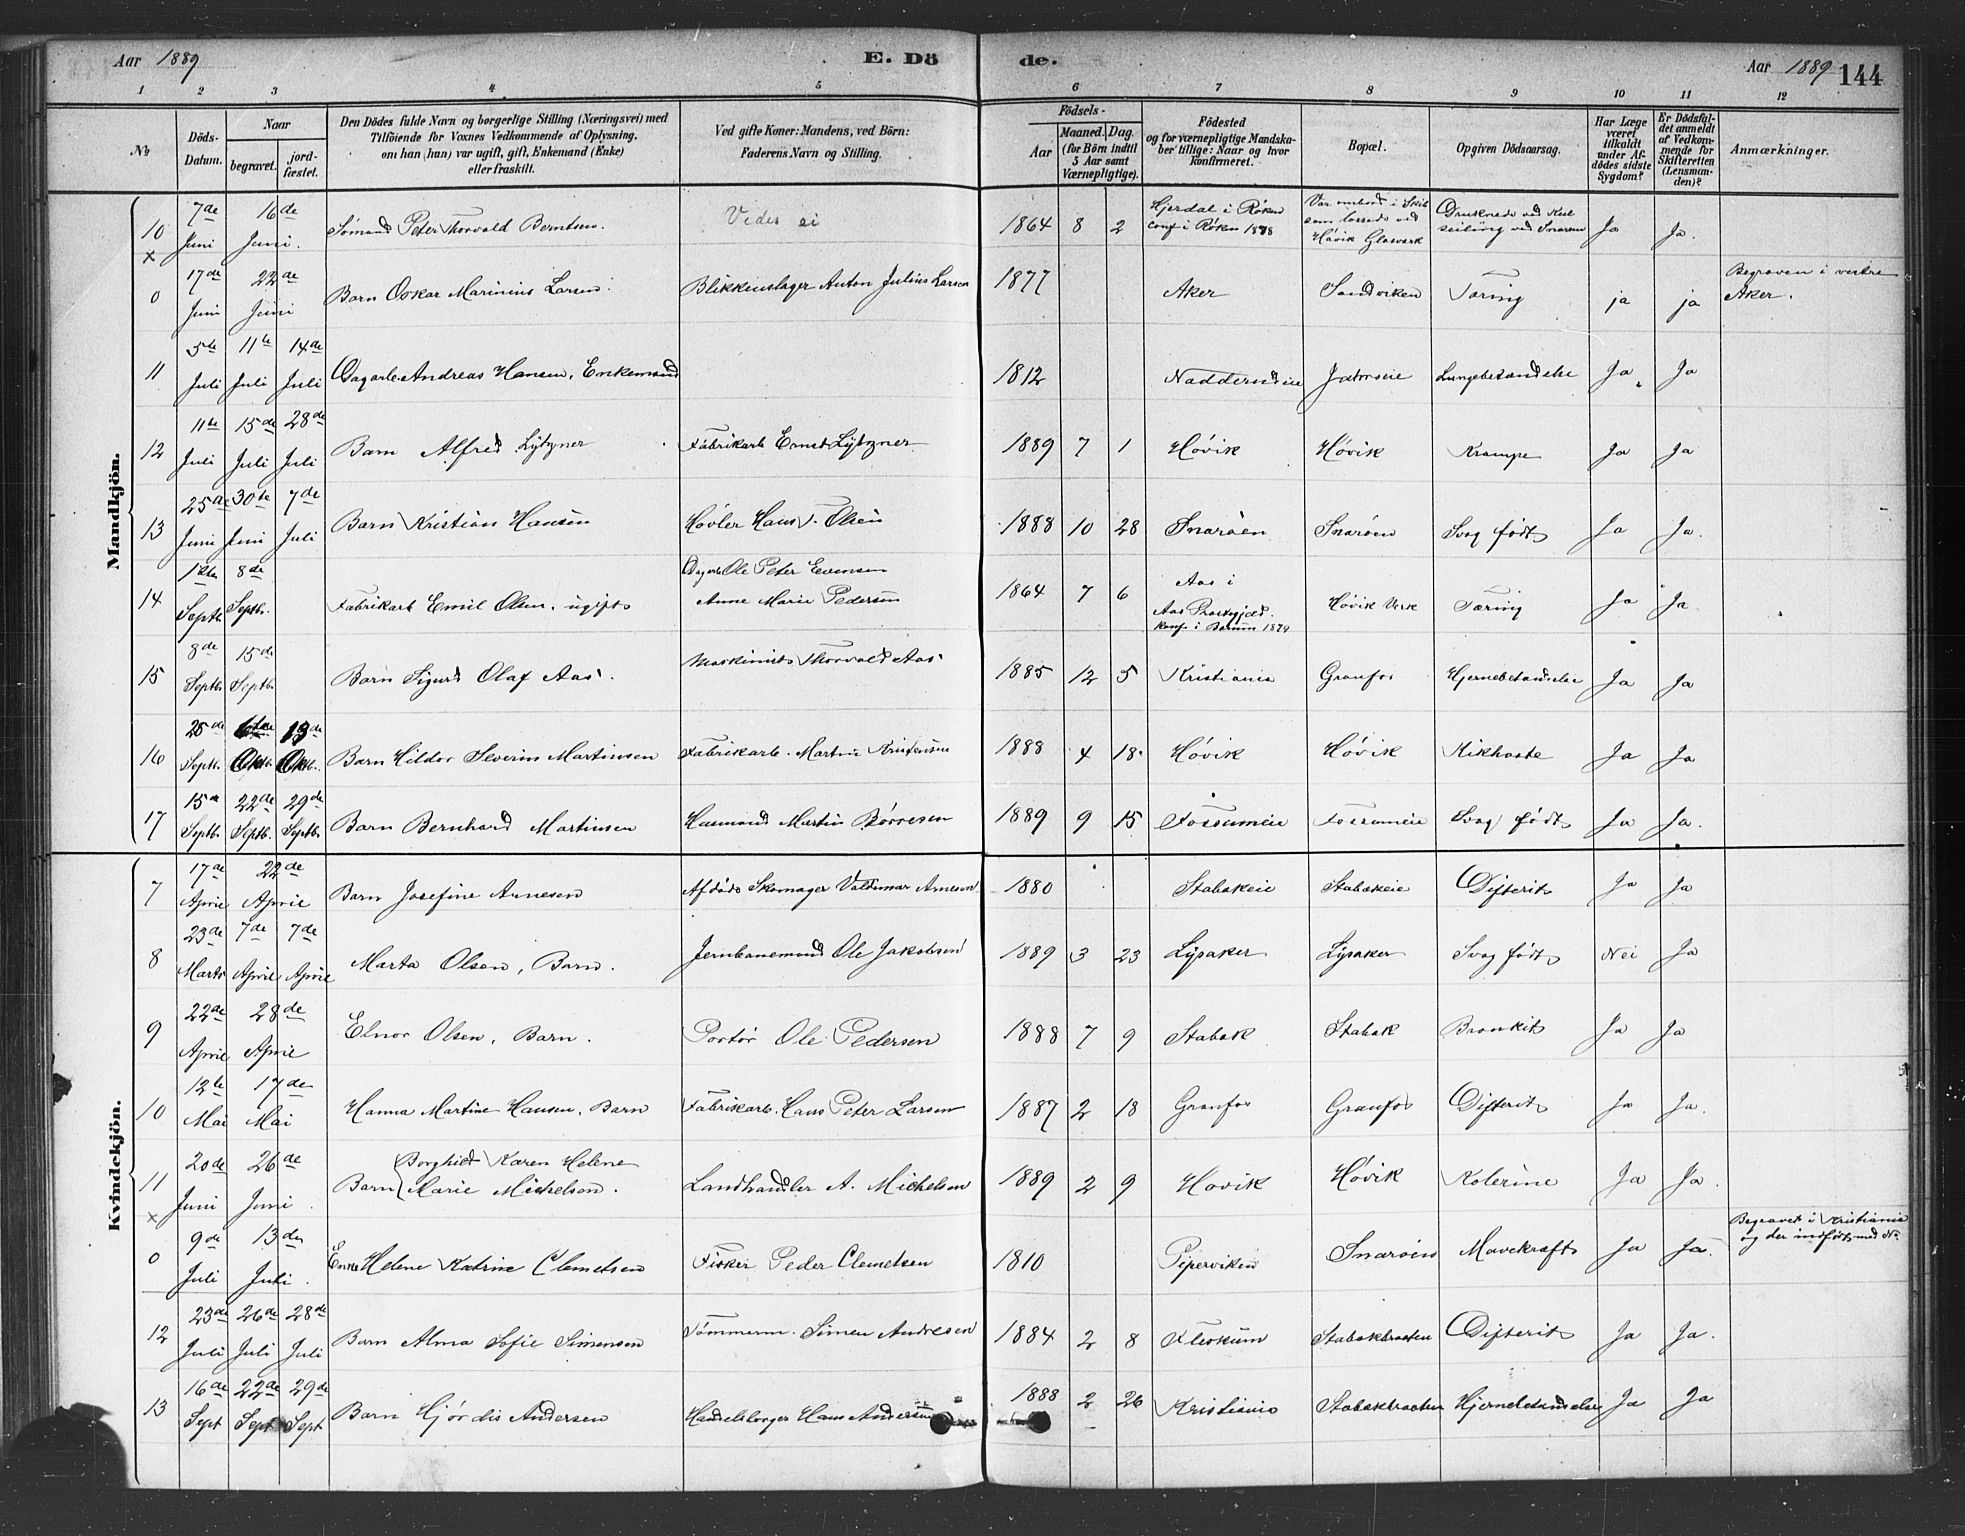 Aar 1889 E. Dö de. Aar 1889 144
1 2 3 4 5 6 7 8 9 10 11 12
No
Döds-Datum.
Naar
begravet.
jord-fæstet.
Den Dödes fulde Navn og borgerlige Stilling (Næringsvei) med
Tilföiende for Voxnes Vedkommende af Oplysning,
om han (hun) var ugift, gift, Enkemand (Enke)
eller fraskilt.
Ved gifte Koner: Mandens, ved Börn:
Faderens Navn og Stilling.
Födsels-
Aar
Maaned. Dag.
(for Börn indtil
5 Aar samt
Værnepligtige).
Födested
og for værnepligtige Mandska-
ber tillige: Naar og hvor
konfirmeret.
Bopæl.
Opgiven Dödsaarsag.
Har Læge
været
tilkaldt
under Af-
dödes sidste
Sygdom?
Er Dödsfal-
det anmeldt
af Vedkom-
mende for
Skifteretten
(Lensman-
den)?
Anmærkninger.
Mandkjön.
10 7de Juni 16de Juni. Sømand Peter Thorvald Berntsen. Vides ei 1864 8 2 Hjerdal i Røken conf i Røken 1878 Var ombord i Skib som lossede ved Høvik Glasværk Druknede ved Kulseiling ved Snarøen Ja Ja.
x
0 17de Juni 22de Juni Barn Oskar Marinius Larsen. Blikkenslager Anton Julius Larsen 1877 Aker Sandviken Tæring ja ja Begraven i vestre Aker.
11 5te Juli 11te Juli 14de Juli Dagarb. Andreas Hansen, Enkemand 1812 Nadderudeie Jatorseie Lungebetændelse Ja Ja
12 11te Juli 15de Juli 28de Juli Barn Alfred Lytzner Fabrikarb Ernst Lytzner 1889 7 1 Høvik Høvik Krampe Ja Ja
13 25de Juni 30te Juni 7de Juli Barn Kristian Hansen Høvler Hans T. Olsen 1888 10 28 Snarøen Snarøen Svag født Ja Ja.
14 1ste Septb. 8de Septb. Fabrikarb Emil Olsen. ugift Dagarb Ole Peter Evensen Anne Marie Pedersen 1864 7 6 Aas i Aas Prestegjæld. konf. i Bærum 1879 Høvik Verk Tæring Ja Ja.
15 8de Septb. 15de Septb. Barn Sigurd Olaf Aas. Maskinist Thorvald Aas 1885 12 5 Kristiania Granfos Hjernebetændelse Ja Ja
16 25de Septb. 6te Oktb. 13de Oktb. Barn Hildor Severin Martinsen Fabrikarb. Martin Kristensen 1888 4 18 Høvik Høvik Kikhoste Ja Ja
17 15de Septb. 22de Septb. 29de Septb. Barn Bernhard Martinsen Husmand Martin Børresen 1889 9 15 Fossumeie Fossumeie Svag født Ja Ja.
Kvindekjön.
7 17de April 22de April Barn Josefine Arnesen Afdøde Skomager Valdimar Arnesen 1880 Stabækeie Stabækeie Difterit Ja Ja
8 23de Marts 7de April 7de April Marta Olsen, Barn. Jernbanemand Ole Jakobsen 1889 3 23 Lysaker Lysaker Svag født Nei Ja
9 22de April 28de April Elnor Olsen, Barn. Portør Ole Pedersen 1888 7 9 Stabæk Stabæk Bronkit Ja Ja
10 12te Mai 17de Mai Hanna Martine Hansen, Barn Fabrikarb. Hans Peter Larsen 1887 2 18 Granfos Granfos Difterit Ja Ja.
11 20de Juni 26de Juni. Barn Borghild Karen Helene Marie Michelson. Landhandler A. Michelson 1889 2 9 Høvik Høvik Kolerine Ja Ja.
x
0 9de Juli 13de Juli. Enke Helene Katrine Clemetsen Fisker Peder Clemetsen 1810 Piperviken Snarøen Mavekræft Ja Ja. Begravet i Kristiania og der indført med No
12 23de Juli 26de Juli 28de Juli Barn Alma Sofie Simensen Tømmerm. Simen Andresen 1884 2 8 Fleskum Stabækbraaten Difterit Ja Ja.
13 16de Sept 22de Sept 29de Sept Barn Hjørdis Andersen Handelsborger Hans Andersen 1888 2 26 Kristiania Stabækbraaten Hjernebetændelse Ja Ja